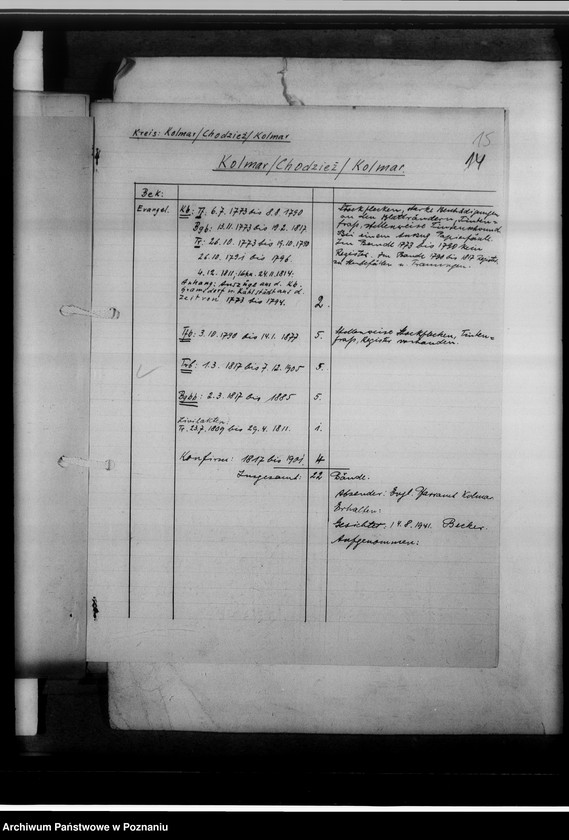 Kreis: Kolmar/Chodzież/Kolmar
15
14
Kolmar/Chodzież/Kolmar
Bek:
Evangel.
Kb: Tf: 6.7.1773 bis 8.8.1790
Bgb: 13.11.1773 bis 19.2.1817
Tr: 26.10.1773 bis 19.10.1790
26.10.1791 bis 1796.
4.12.1811; 24.11.1814.
Anhang: Auszüge aus d. Kb.
u. Kahlstädt aus d.
Zeit von 1773 bis 1794.
2.
Stockflecken, starke Beschädigungen
an den Blatträndern, Tinten=
fraß, stellenweise
Bei einem Papier
Im Bande 1773 bis 1790 kein
Register. Im Bande 1790 bis 1817 Register
zu Sterbefällen u. Trauungen.
Tfb: 3.10.1790 bis 14.1.1877
5.
Stellenweise Stockflecken, Tinten=
fraß, Register vorhanden.
Trb: 1.3.1817 bis 7.12.1905
5.
Bgbb: 2.3.1817 bis 1885
5.
Zivilakten:
Tr. 23.7.1809 bis 29.4.1811.
1.
Konfirm: 1817 bis 1901.
4
Insgesamt: 22 Bände.
Absender: Evgl. Pfarramt Kolmar
Erhalten:
Gesichtet, 14.8.1941. Becker.
Aufgenommen:
Archiwum Państwowe w Poznaniu